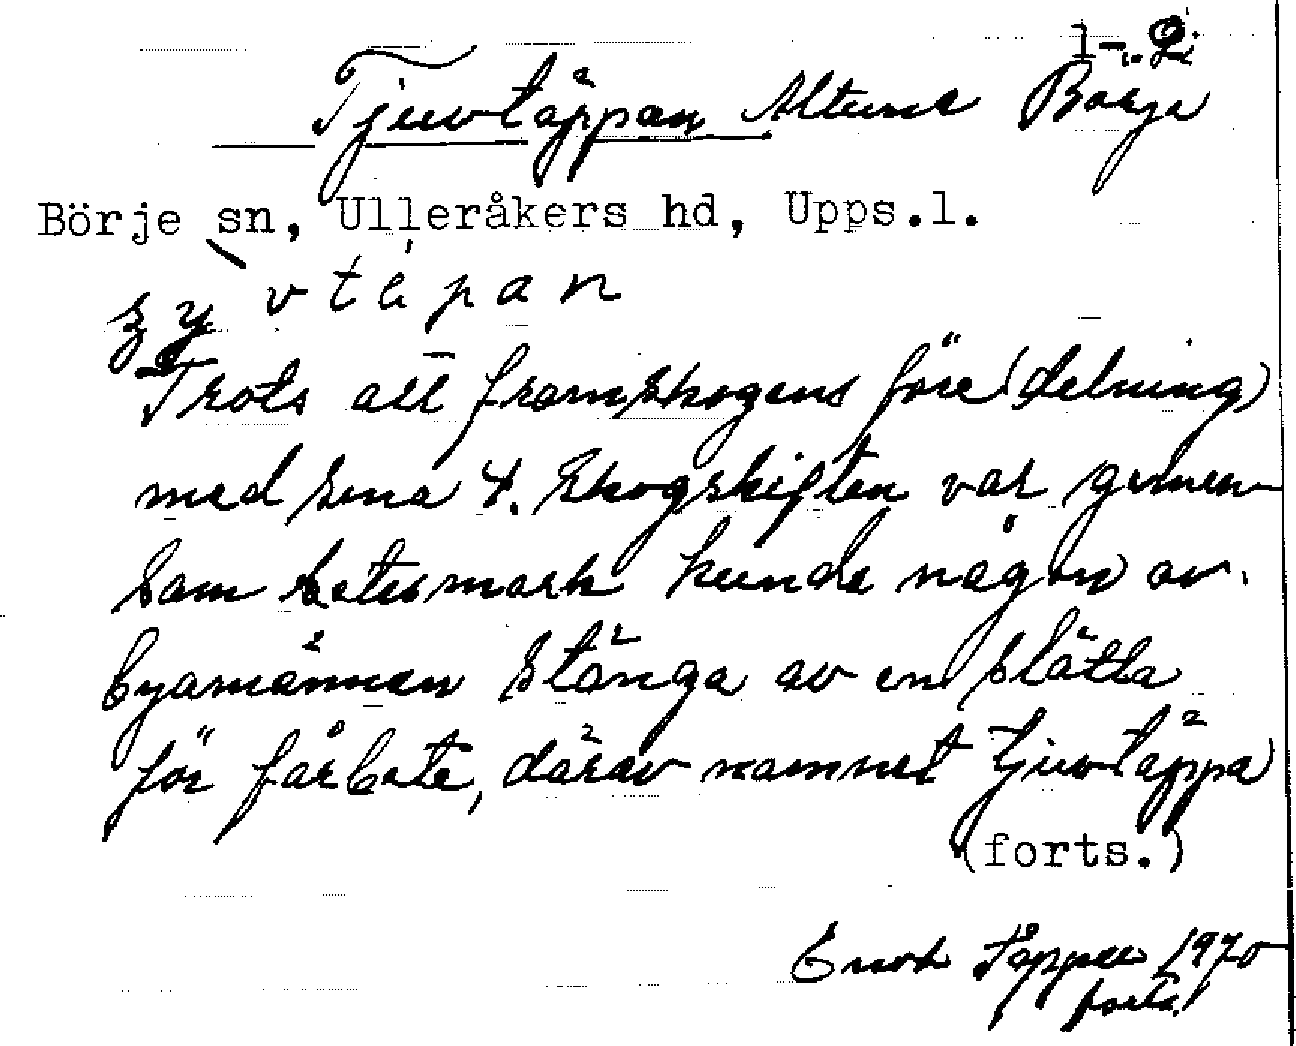 1-2
Tjuvtäppan Altuna Börje
Börje sn, Ulleråkers hd, Upps.l.
vtäpan
Trots att framskogens före(delning)
med sina 4. skogskiften var gemen-
sam betesmark kunde någon av
byamännen stänga av en slätta
för fårbete, därav namnet tjuvtäppa
(forts.)
Enok 1970
forts.